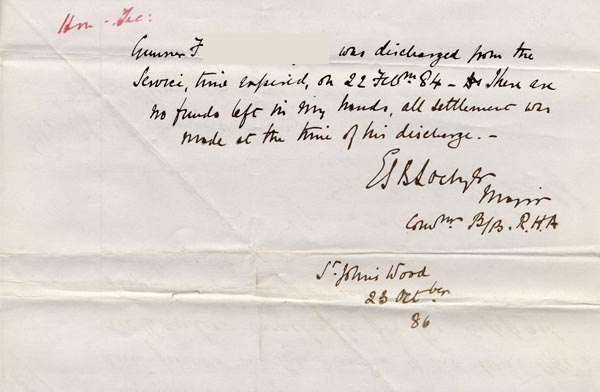 Hon - Sec:
Gunner F was discharged from the
Service, time expired, on 22 Feb 84 - There are
no funds left in my hands, all settlement was
made at the time of his discharge. -
Major
Comdg B/B. R.H.A
St. John's Wood
23 Octber
86